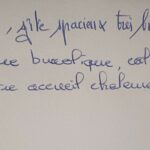 , gîte spacieux très b
ue bucolique, cal
 accueil chaleu